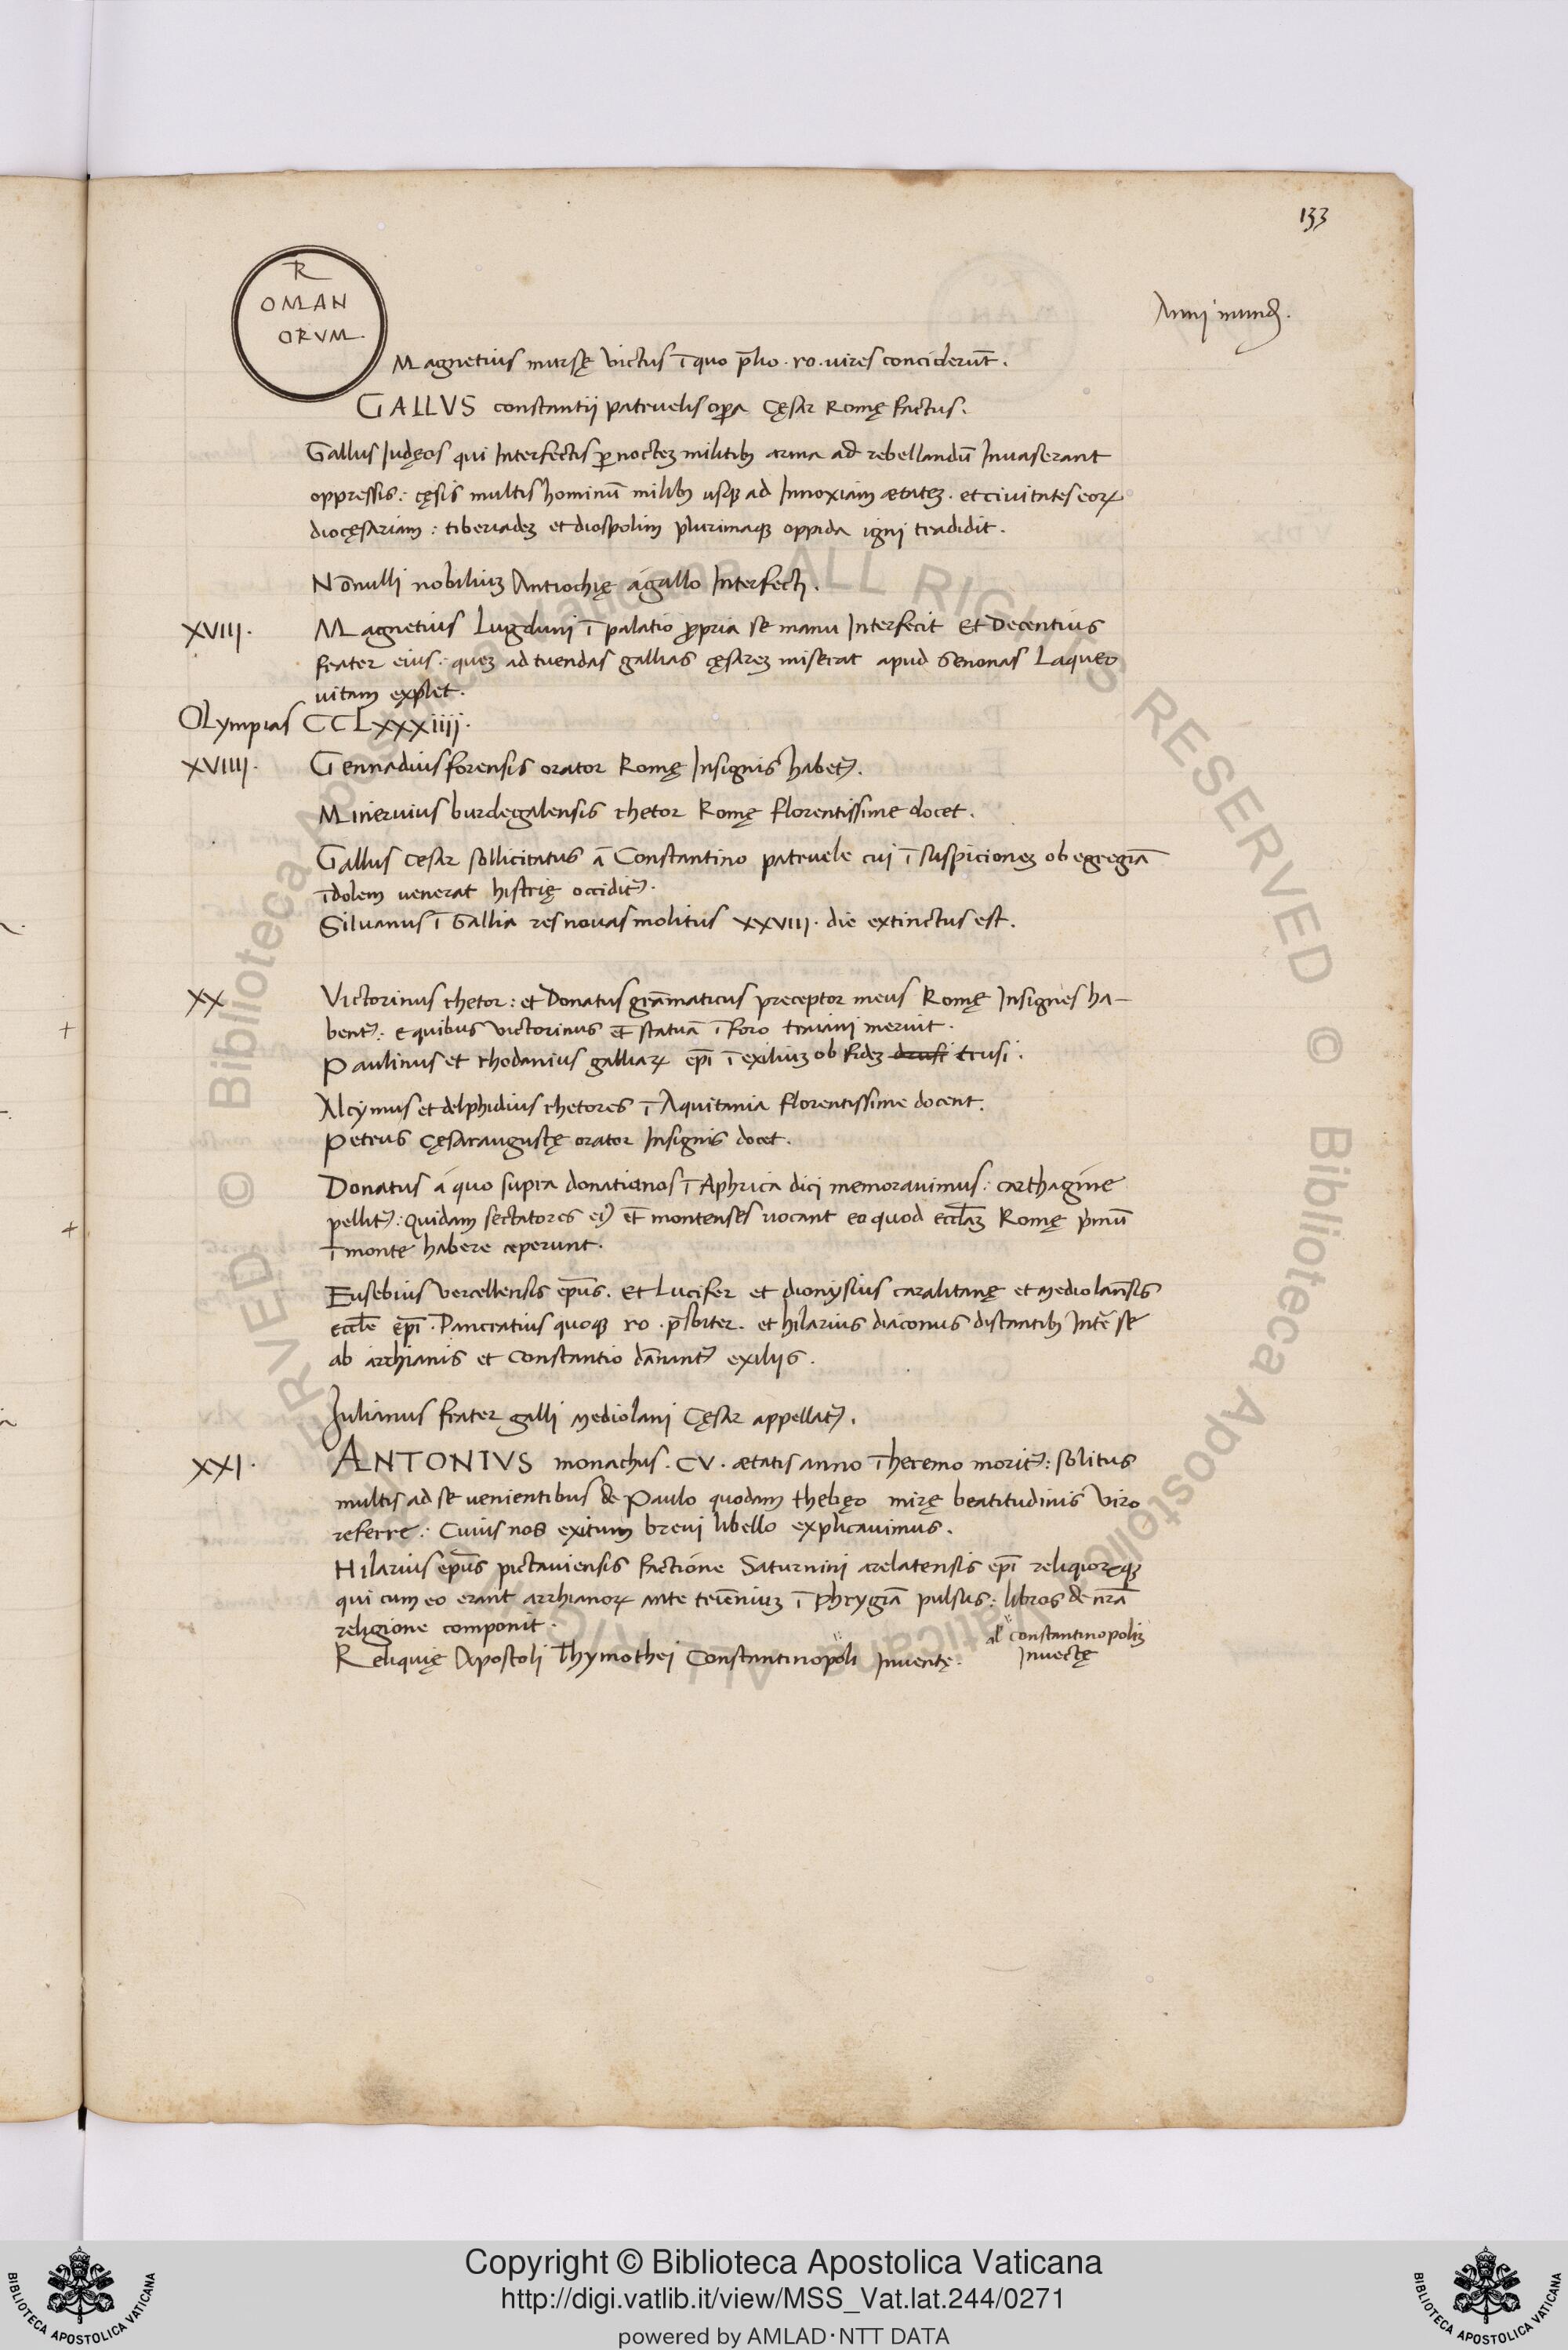 133
R
OMAN
ORVM.
Anni mund.
Magnetius mursę victus ī quo p̄lio. ro. vires conciderūt.
GALLVS constantii patruelis opa Cęsar Romę factus.
Gallus Iudęos qui Interfectis ꝑ noctez militibꝫ arma ad rebellandū Invaserant
oppressis: cęsis multis hominū milibꝫ usqꝫ ad Innoxiam ætatez. et civitates eoꝝ
diocęsariam: tiberiadez et diospolim plurimaqꝫ oppida igni tradidit.
Nōnulli nobilium Antiochię á gallo Interfecti.
XVIII. Magnetius Lugduni ī palatio ꝓpria se manu Interfecit Et Decentius
frater eius: quez ad tuendas gallias cęsarez miserat apud Senonas Laqueo
uitam explet.
OLympias CCLxxxiiii.
XVIIII. Gennadius forensis orator Romę Insignis habet᷑.
Mineruius burdegalensis rhetor Romę florentissime docet.
Gallus Cesar sollicitatus ā Constantino patruele cui ī suspicionez ob egregiā
īdolem venerat histrię occidit᷑.
Siluanus ī Gallia res nouas molitus XXVIII. die extinctus est.
XX Victorinus rhetor: et Donatus grāmaticus preceptor meus Romę Insignes ha-
bent᷑: E quibus Victorinus et̄ statuā ī foro traiani meruit.
Paulinus et rhodanius galliaꝝ ep̄i ī exiliuz ob fidez drusi trusi.
Alcymus et delphidius rhetores ī Aquitania florentissime docent.
Petrus Cęsaraugustę orator Insignis docet.
Donatus á quo supra donatianos ī Aphrica dici memorauimus: carthagine
pellit᷑: Quidam sectatores eiꝰ et̄ montenses uocant eo quod eccl̄az Romę pͥmū
ī monte habere ceperunt.
Eusebius Vercellensis ep̄us. Et Lucifer et dionysius caralitanę et Mediolan̄sis
eccl̄e ep̄i. Pancratius quoqꝫ ro. p̄sbiter. et hilarius diaconus distantibꝫ Inte᷑ se
ab arrhianis et Constantio dānant᷑ exiliis.
Iulianus frater galli Mediolani Cęsar appellat᷑.
XXI. ANTONIVS monachus. CV. ætatis anno ī heremo morit᷑: solitus
multis ad se uenientibus de Paulo quodam thebęo mirę beatitudinis viro
referre: Cuius nos exitum breui libello explicauimus.
Hilarius ep̄us pictauiensis factione Saturnini arelatensis ep̄i reliquoꝝqꝫ
qui cum eo erant arrhianoꝝ ante triēniuz ī phrygiā pulsus: libros de nr̄a
religione componit.
al' constantinopoliz
Reliquię Apostoli Thymothei Constantinopoli Inventę. Invectę
Copyright © Biblioteca Apostolica Vaticana
http://digi.vatlib.it/view/MSS_Vat.lat.244/0271
powered by AMLAD·NTT DATA
BIBLIOTECA APOSTOLICA VATICANA
BIBLIOTECA APOSTOLICA VATICANA